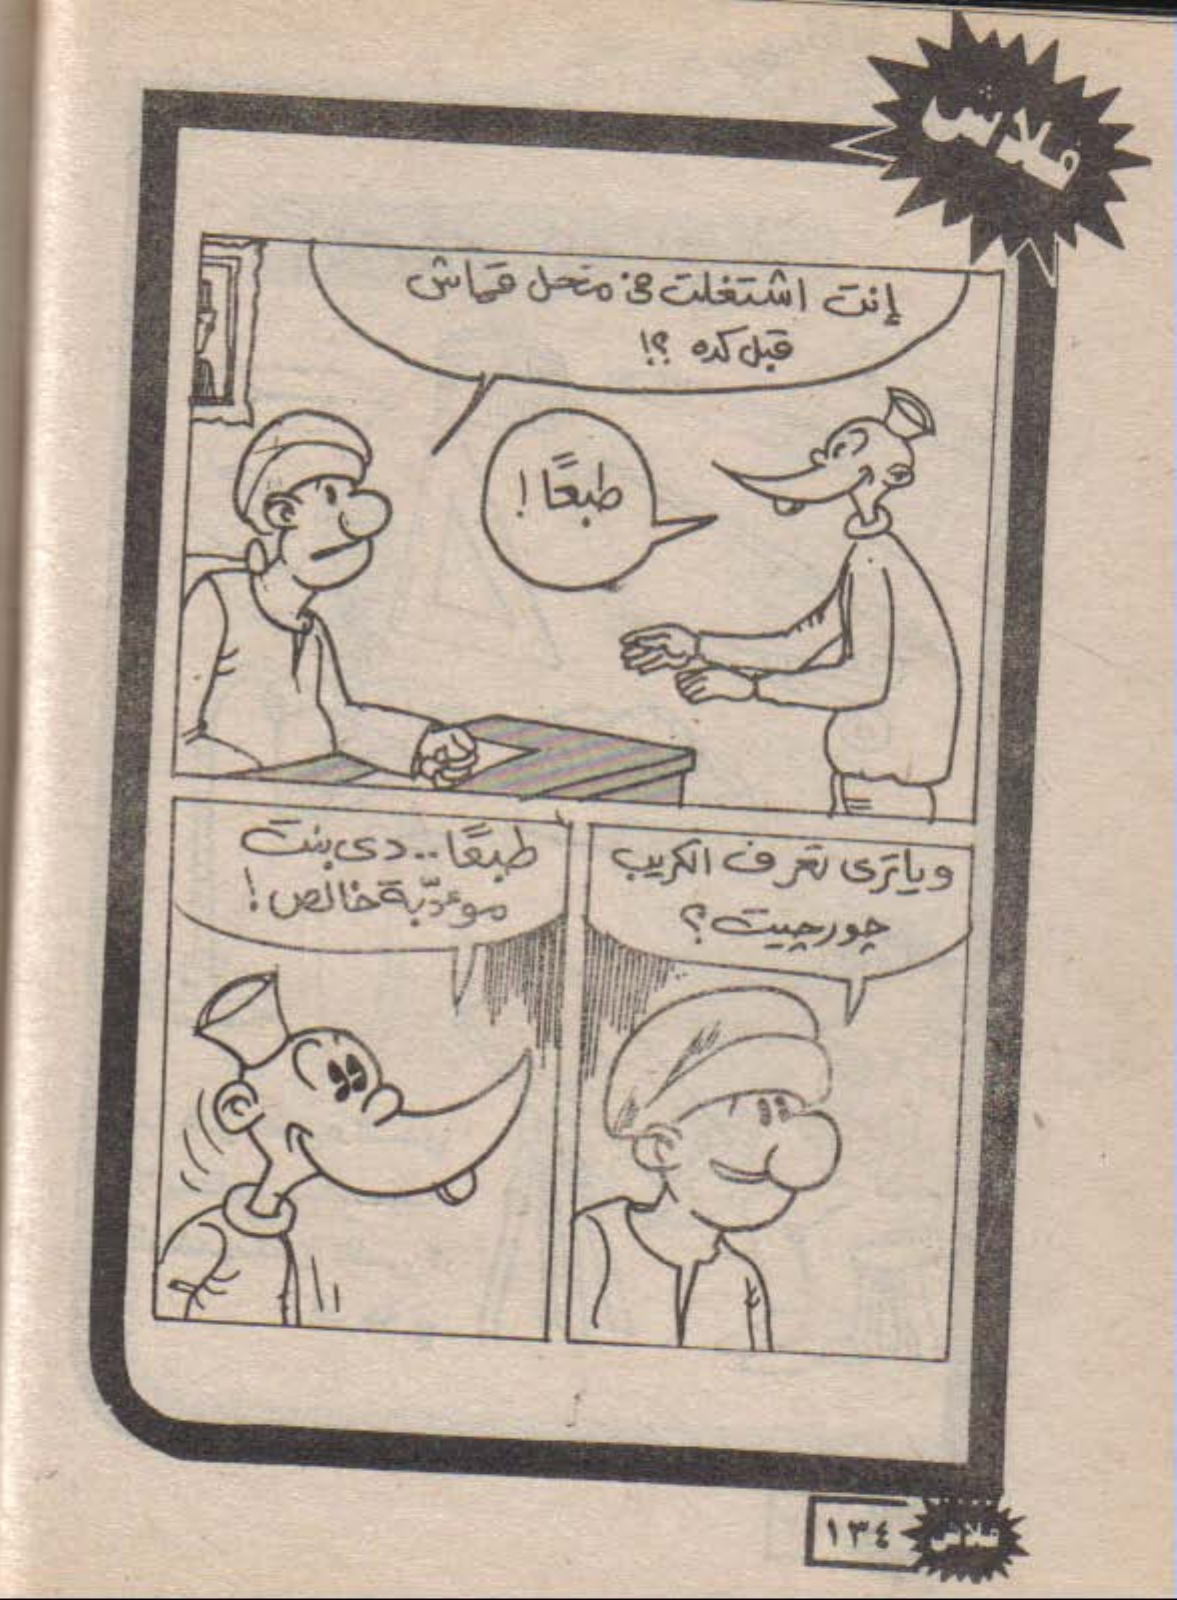 فلاش
إنت اشتغلت فى محل قماش
قبل كده ؟!
طبعًا !
وياترى تعرف الكريب
چورچيت ؟
طبعًا .. دى بنت
موءدّبة خالص !
١٣٤
فلاش